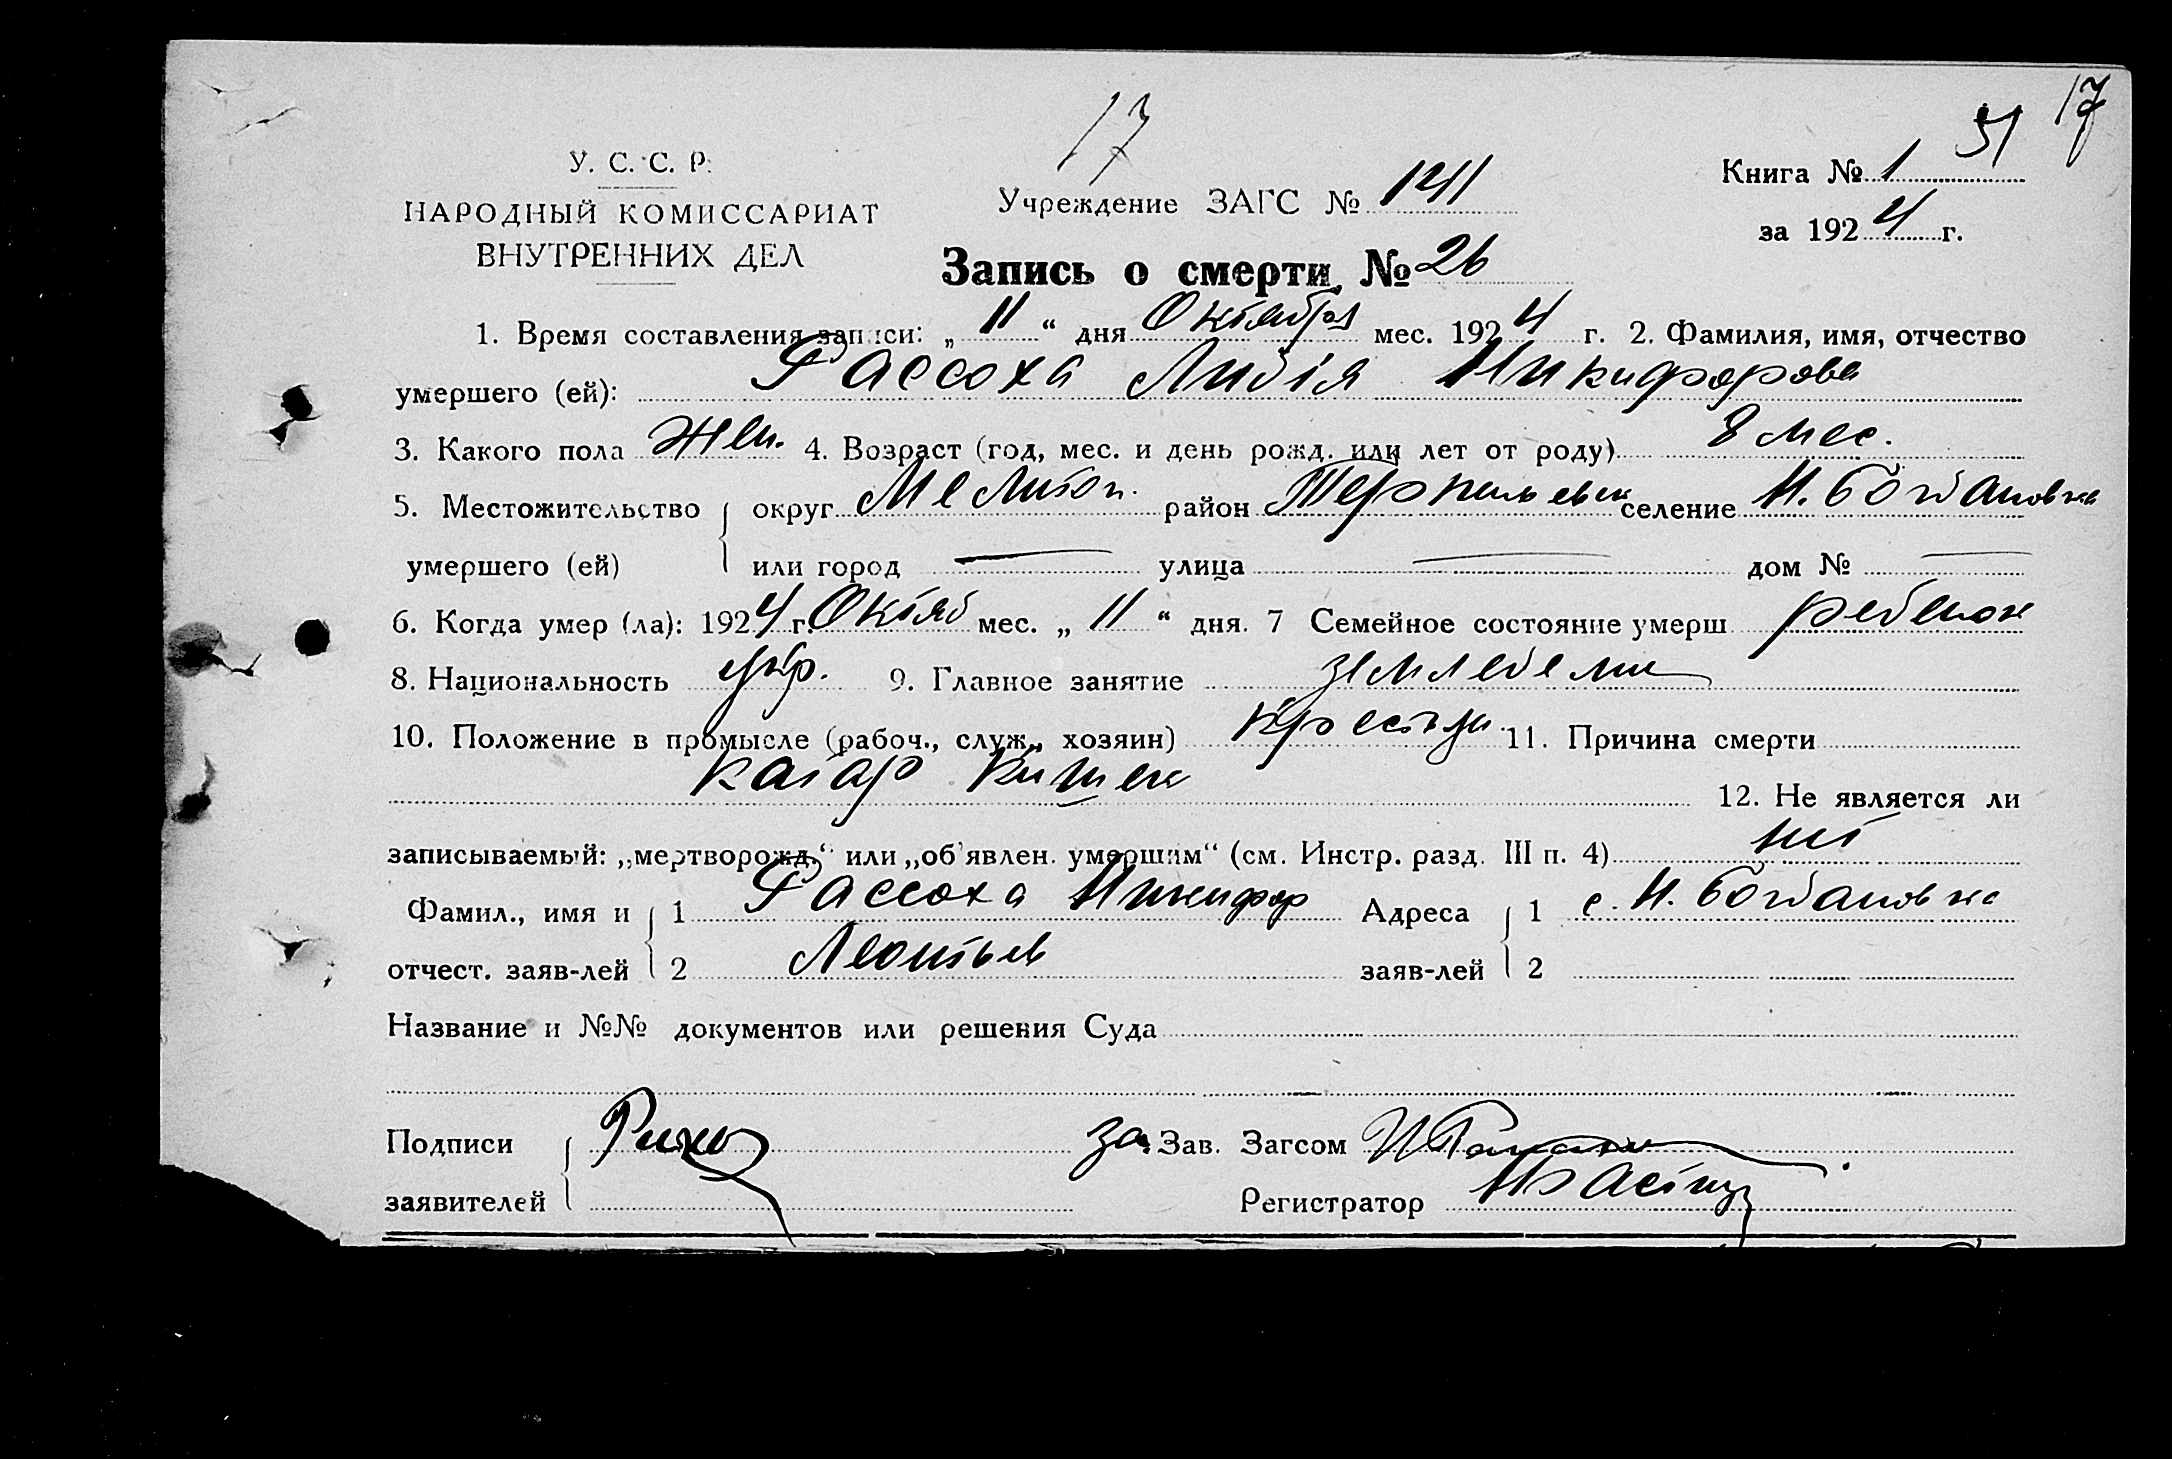 17
17
51
У. С. С. Р.
НАРОДНЫЙ КОМИССАРИАТ
ВНУТРЕННИХ ДЕЛ
Учреждение ЗАГС № 1411
Книга № 1
за 1924 г.
Запись о смерти № 26
1. Время составления записи: „ 11 “ дня Октября мес. 1924 г. 2. Фамилия, имя, отчество
умершего (ей): Рассоха Лидія Никифорова
3. Какого пола жен. 4. Возраст (год, мес. и день рожд. или лет от роду) 8 мес.
5. Местожительство округ Мелитоп. район Терпеньевск селение Н. Богдановка
умершего (ей) или город — улица — дом № —
6. Когда умер (ла): 1924 г. Октяб мес. „ 11 “ дня. 7 Семейное состояние умерш. ребенок
8. Национальность укр. 9. Главное занятие земледелие
10. Положение в промысле (рабоч., служ., хозяин) крестьян. 11. Причина смерти
катар кишек
12. Не является ли
записываемый: „мертворожд.“ или „об'явлен. умершим“ (см. Инстр. разд. III п. 4) нет
Фамил., имя и 1 Рассоха Никифор Адреса 1 с. Н. Богдановка
отчест. заяв-лей 2 Леонтьев заяв-лей 2
Название и №№ документов или решения Суда
Подписи за Зав. Загсом
заявителей Регистратор